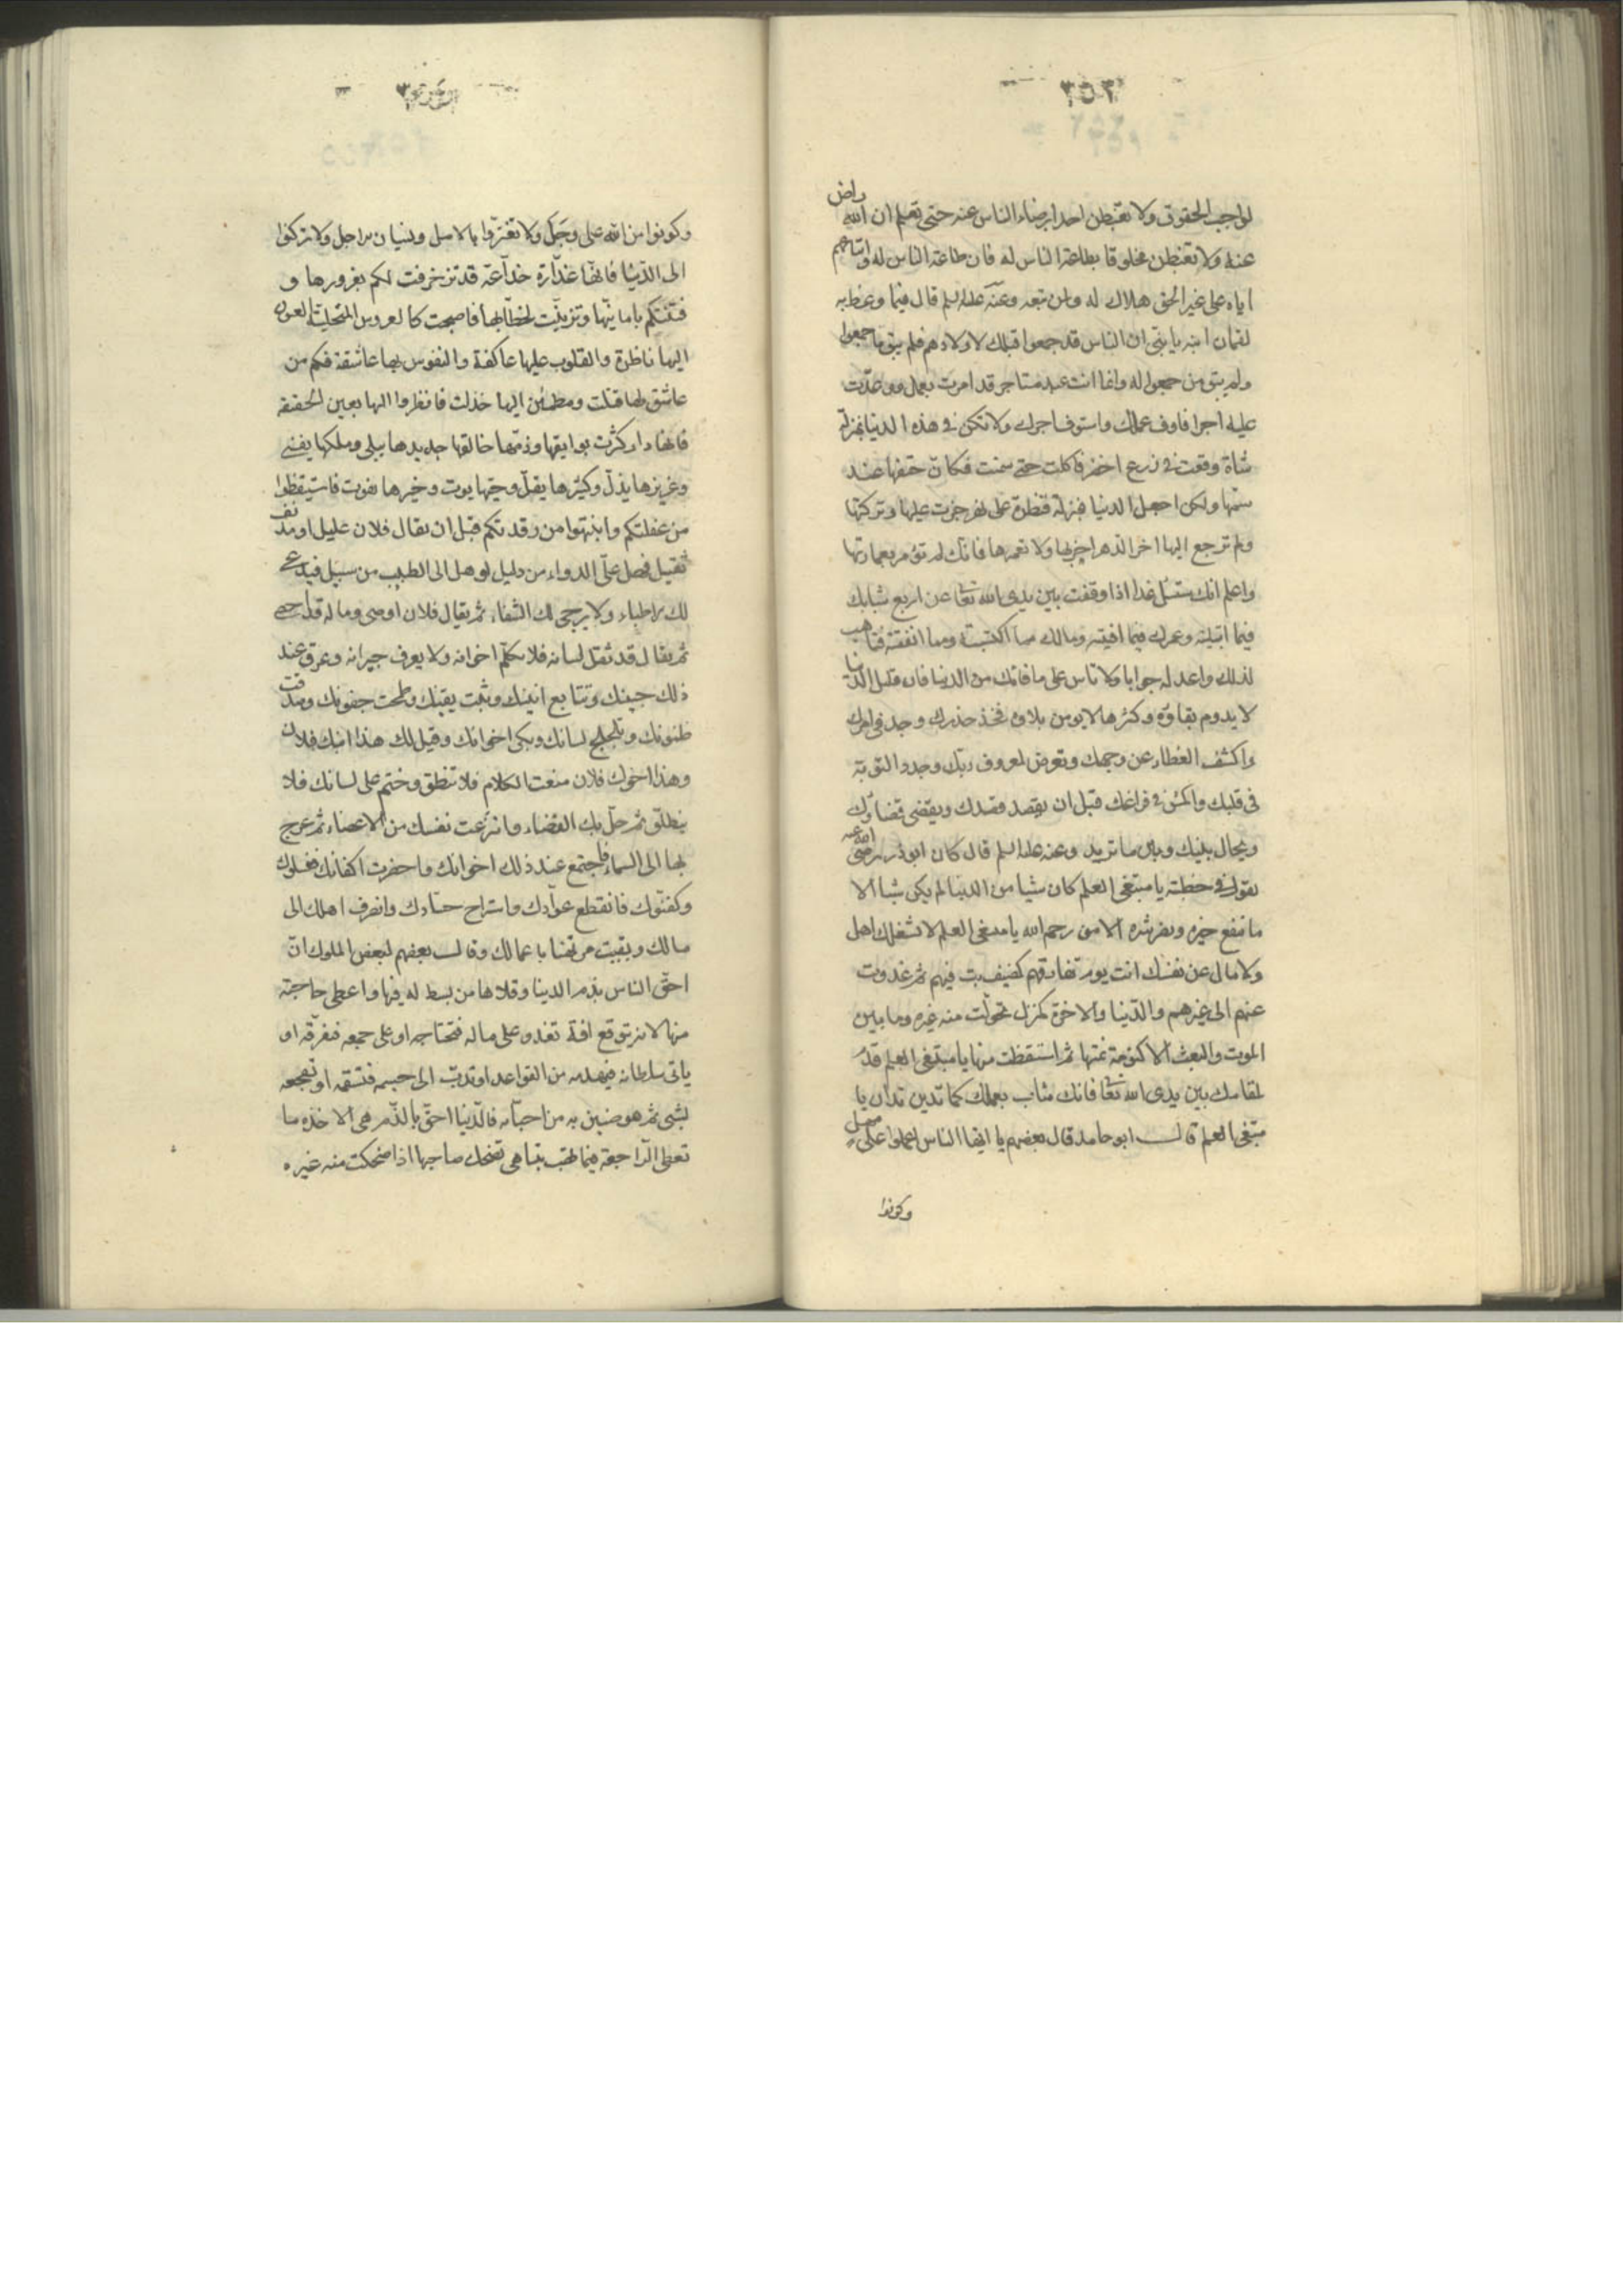 ٣٥٣
لواجب الحقوق ولا تغبطن احدا برضاء الناس عنه حتى تعلم ان الله راض
عنه ولا تغبطن مخلوقا بطاعة الناس له فان طاعة الناس له واتباعهم
اياه على غير الحق هلاك له ولمن تبعه وعنه عليه السلم قال فيما وعظ به
لقمان ابنه يا بنى ان الناس قد جمعوا قبلك لاولادهم فلم يبق ما جمعوا
ولم يبق من جمعوا له وانما انت عبد مستاجر قد امرت بعمل ووعدت
عليه اجرا فاوف عملك واستوف اجرك ولا تكن فى هذه الدنيا بمنزلة
شاة وقعت فى زرع اخضر فاكلت حتى سمنت فكان حتفها عند
سمنها ولكن اجعل الدنيا بمنزلة قنطرة على نهر جزت عليها وتركتها
ولم ترجع اليها اخر الدهر اخربها ولا تعمرها فانك لم تؤمر بعمارتها
واعلم انك ستسئل غدا اذا وقفت بين يدى الله تعا عن اربع شبابك
فيما ابليته وعمرك فيما افنيته ومالك مما اكتسبته وفيما انفقته فتاهب
لذلك واعد له جوابا ولا تاس على ما فاتك من الدنيا فان قليل الدنيا
لا يدوم بقاؤه وكثيرها لا يومن بلاؤه فخذ حذرك وجد فى امرك
واكشف الغطاء عن وجهك وتعرض لمعروف ربك وجدد التوبة
فى قلبك واكمش فى فراغك قبل ان يقصد قصدك ويقضى قضاؤك
ويحال بينك وبين ما تريد وعنه عليه السلم قال كان ابوذر رضى الله عنه
يقول فى خطبته يا مبتغى العلم كان شيا من الدنيا لم يكن شيا الا
ما ينفع خيره ويضر شره الا من رحم الله يا مبتغى العلم لا تشغلك اهل
ولا مال عن نفسك انت يوم تفارقهم كضيف بت فيهم ثم غدوت
عنهم الى غيرهم والدنيا والاخرة كمنزل تحولت منه غيره وما بين
الموت والبعث الا كنومة نمتها ثم استيقظت منها يا مبتغى العلم قدم
لمقامك بين يدى الله تعا فانك مثاب بعملك كما تدين تدان يا
مبتغى العلم قال ابو حامد قال بعضهم يا ايها الناس اعملوا على مهل
وكونوا
وكونوا من الله على وجل ولا تغتروا بالامل ونسيان الاجل ولا تركنوا
الى الدنيا فانها غدارة خداعة قد تزخرفت لكم بغرورها و
فتنتكم بامانيها وتزينت لخطابها فاصبحت كالعروس المتحلية العيون
اليها ناظرة والقلوب عليها عاكفة والنفوس بها عاشقة فكم من
عاشق لها قتلت ومطمئن اليها خذلت فانظروا اليها بعين الحقيقة
فانها دار كثرت بوايقها وذمها خالقها جديدها يبلى وملكها يفنى
وعزيزها يذل وكثيرها يقل وحيها يموت وخيرها يفوت فاستيقظوا
من غفلتكم وانتبهوا من رقدتكم قبل ان يقال فلان عليل او مدنف
ثقيل فهل على الدواء من دليل او هل الى الطبيب من سبيل فيدعى
لك الاطباء ولا يرجى لك الشفاء ثم يقال فلان اوصى وما له قد احصى
ثم يقال قد ثقل لسانه فلا يكلم اخوانه ولا يعرف جيرانه وعرق عند
ذلك جبينك وتتابع انينك وثبت يقينك وطمحت جفونك وصدقت
ظنونك وتلجلج لسانك وبكى اخوانك وقيل لك هذا ابنك فلان
وهذا اخوك فلان منعت الكلام فلا تنطق وختم على لسانك فلا
ينطلق ثم حل بك القضاء وانتزعت نفسك من الاعضاء ثم عرج
بها الى السماء فاجتمع عند ذلك اخوانك واحضرت اكفانك فغسلوك
وكفنوك فانقطع عوادك واستراح حسادك وانصرف اهلك الى
مالك وبقيت مرتهنا باعمالك وقال بعضهم لبعض الملوك ان
احق الناس بذم الدنيا وقلاها من بسط له فيها واعطى حاجته
منها لانه يتوقع افة تغدو على ماله فتحتاجه او على جمعه فتفرقه او
ياتى سلطانه فيهدمه من القواعد او تدب الى جسمه فتسقمه او تفجعه
بشى ثم هو ضنين به من احبابه فالدنيا احق بالذم هى الاخذة ما
تعطى الراجعة فيما تهب بينا هى تضحك صاحبها اذا ضحكت منه غيره